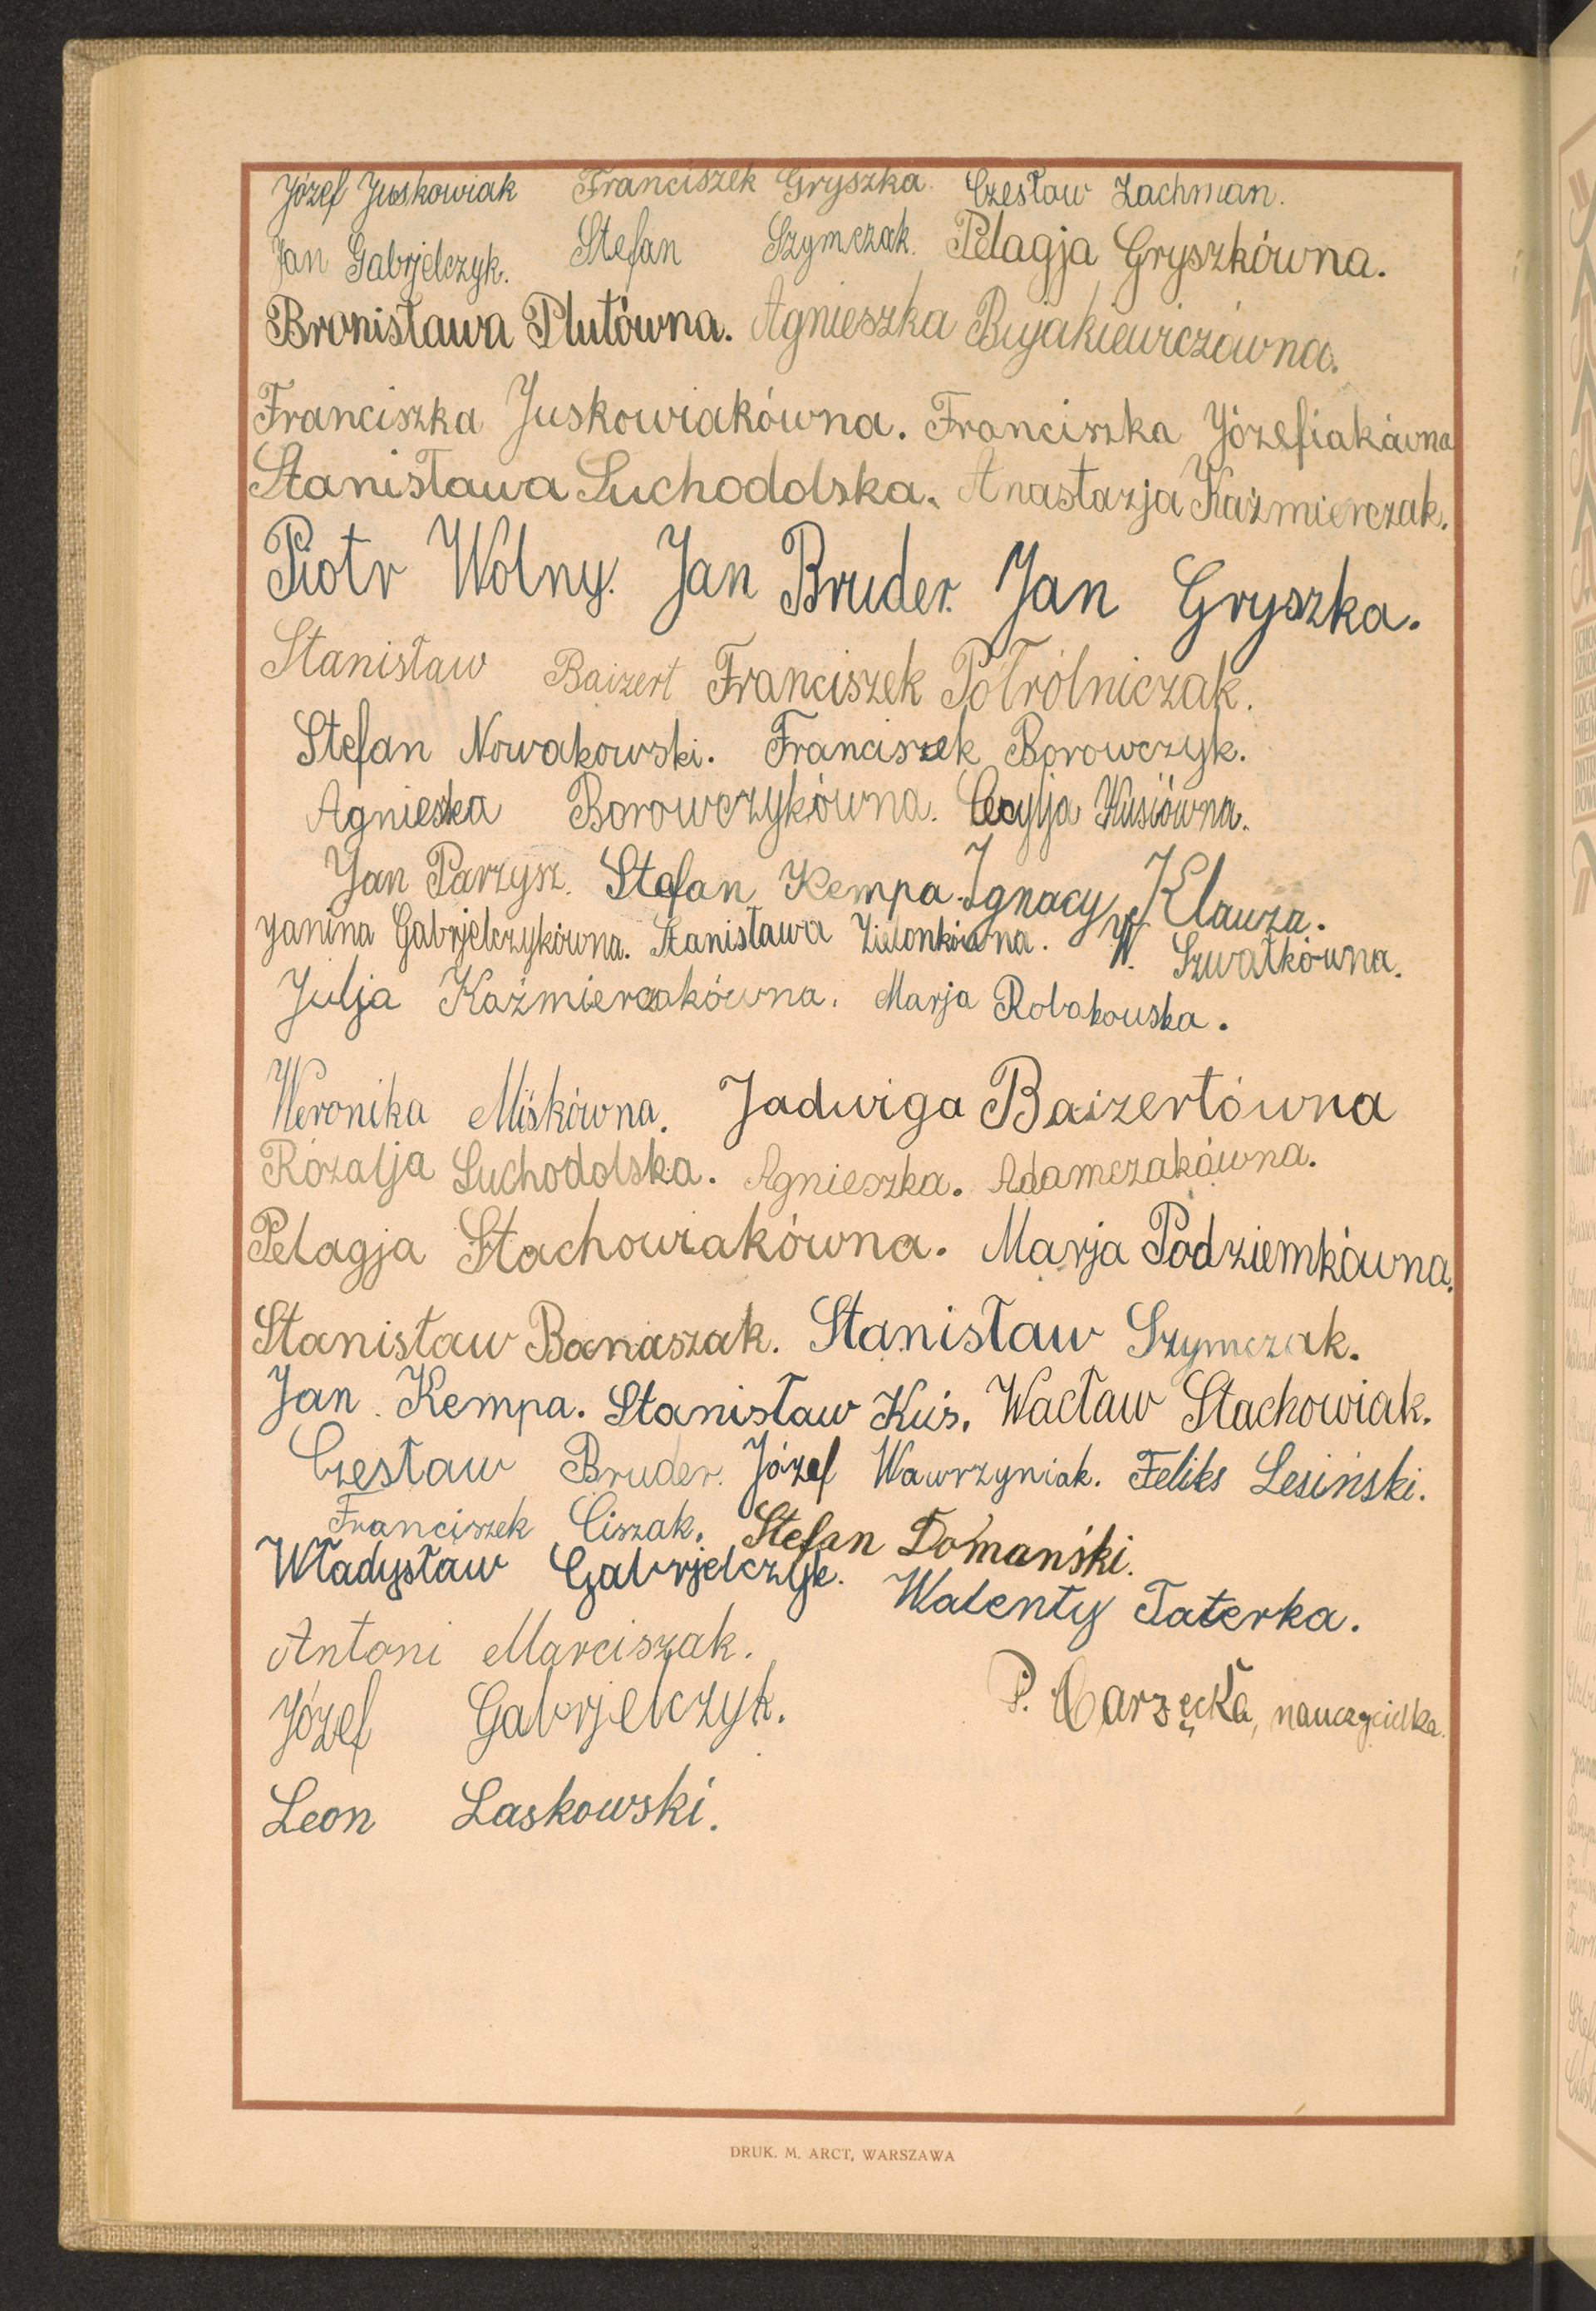 Józef Juskowiak Franciszek Gryszka. Czesław Lachman.
Jan Gabrjelczyk. Stefan Szymczak. Pelagja Gryszkówna.
Bronisława Plutówna. Agnieszka Bujakiewiczówna.
Franciszka Juskowiakówna. Franciszka Józefiakówna
Stanisława Suchodolska. Anastazja Kaźmierczak.
Piotr Wolny. Jan Bruder. Jan Gryszka.
Stanisław Baizert Franciszek Półrólniczak.
Stefan Nowakowski. Franciszek Borowczyk.
Agnieszka Borowczykówna. Cecylja Kusiówna.
Jan Parzysz. Stefan Kempa. Ignacy Klauza.
Janina Gabrjelczykówna. Stanisława Zielonkówna. W. Szwałkówna.
Julja Kaźmierczakówna. Marja Robakowska.
Weronika Miśkówna. Jadwiga Baizertówna
Rózalja Suchodolska. Agnieszka. Adamczakówna.
Pelagja Stachowiakówna. Marja Podziemkówna.
Stanisław Banaszak. Stanisław Szymczak.
Jan Kempa. Stanisław Kuś. Wacław Stachowiak.
Czesław Bruder. Józef Wawrzyniak. Feliks Lesiński.
Franciszek Ciszak. Stefan Domański.
Władysław Gabrjelczyk. Walenty Taterka.
Antoni Marciszak.
Józef Gabrjelczyk. P. Carzęcka, nauczycielka.
Leon Laskowski.
DRUK. M. ARCT, WARSZAWA